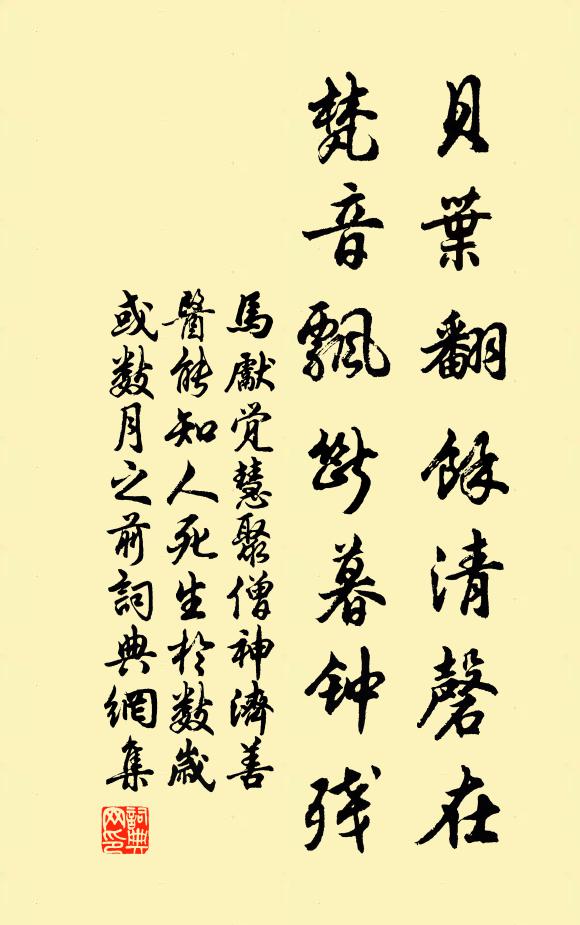 貝葉翻餘清磬在
梵音飄斷暮钟殘
馬獻覚慧聚僧神濟善
醫能知人死生於数歲
或数月之前詞典網集
詞典网印